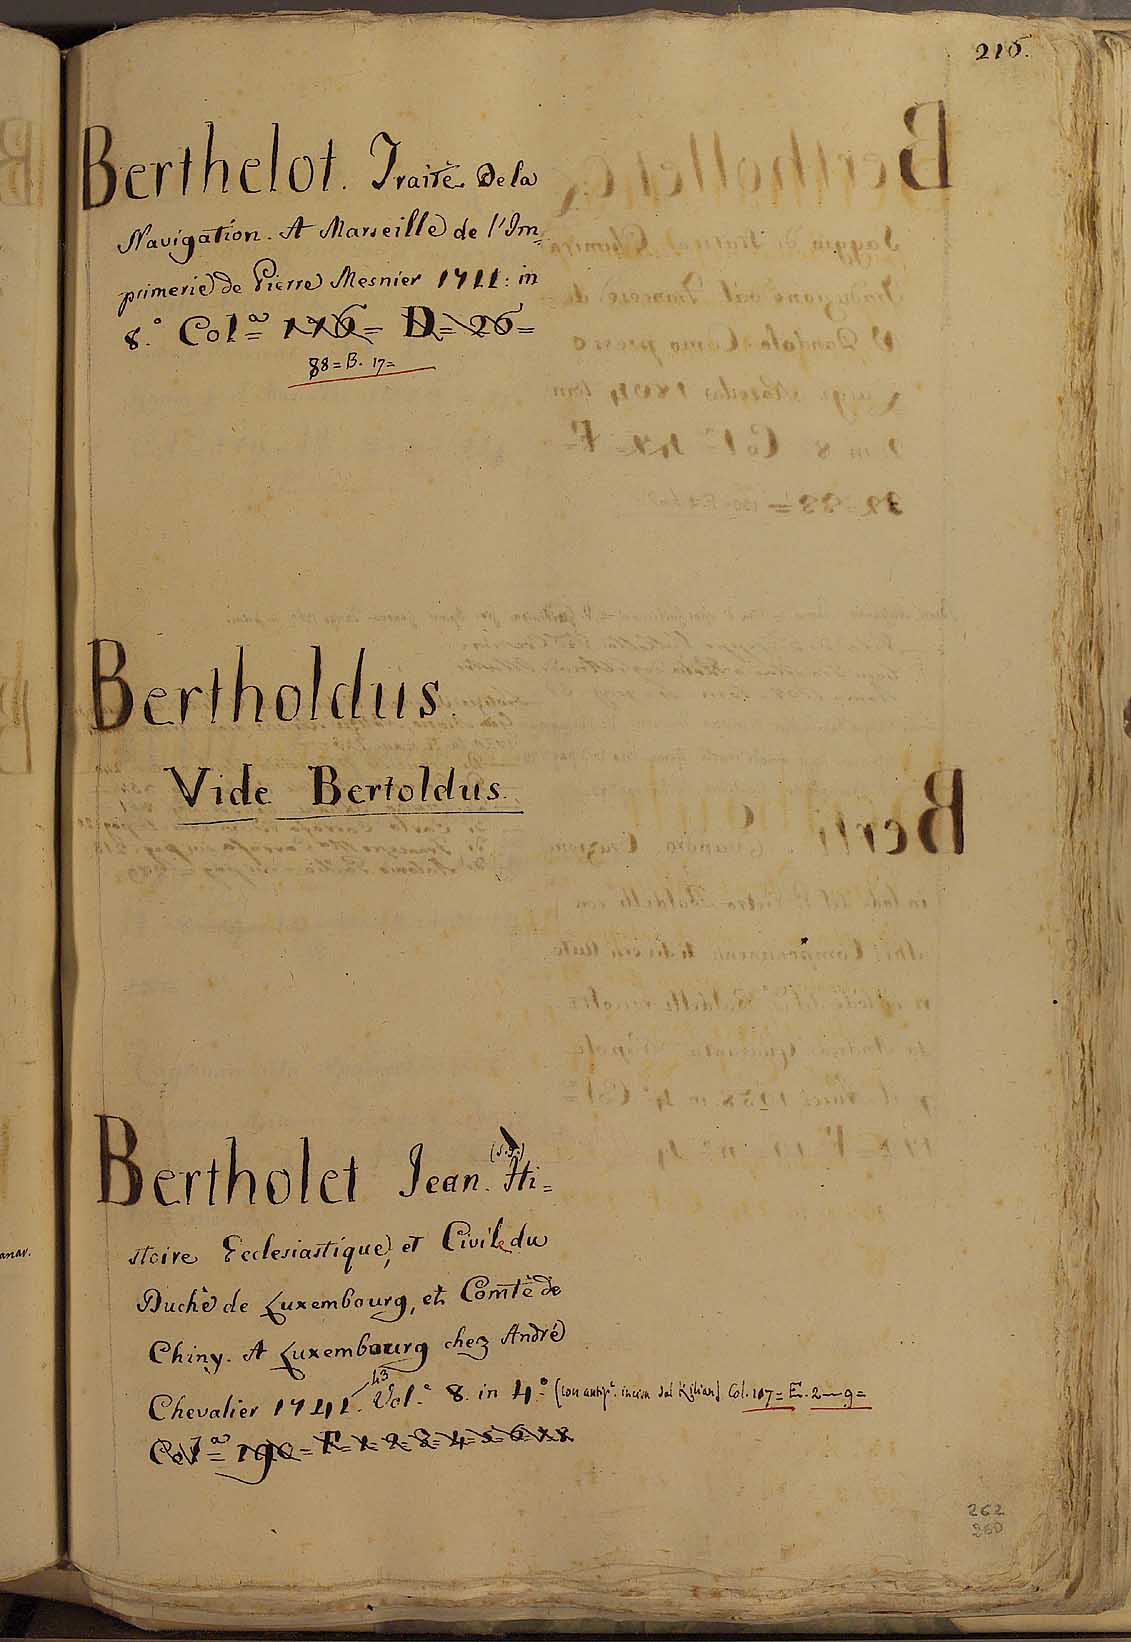 216.
Berthelot. Traitè De la
Navigation. A Marseille de l'Im=
primerie de Pierre Mesnier 1711: in
8.° Col.ª 176= D= 26=
88= B. 17=
Bertholdus.
Vide Bertoldus.
Bertholet Jean. (S.J.) Hi=
stoire Ecclesiastique, et Civile du
Duchè de Luxembourg, et Comtè de
Chiny. A Luxembourg chez André
Chevalier 1741. 43 Vol.ᵉ 8. in 4.° (con antip.ᵉ incisa dal Kilian) Col. 107= E. 2-9=
Col.ª 190= F= 1= 2= 3= 4= 5= 6= 7. 8
anav.
262
260